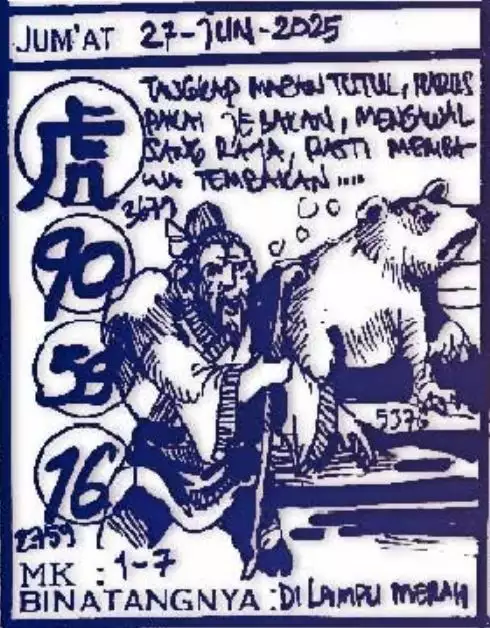 JUM'AT 27-JUN-2025
TANGKAP MACAN TUTUL, HARUS
PAKAI JEBAKAN, MENGAWAL
SANG RAJA, PASTI MEMBA-
WA TEMBAKAN ....
虎
3679
90
58
5376
16
2759
MK : 1-7
BINATANGNYA : DI LAMPU MERAH